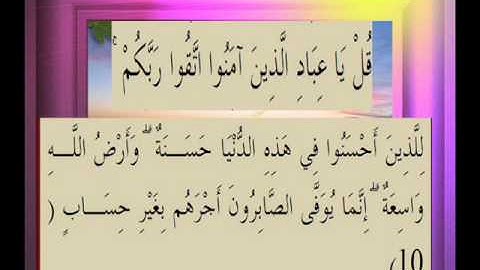 قُلْ يَا عِبَادِ الَّذِينَ آمَنُوا اتَّقُوا رَبَّكُمْ ۚ
لِلَّذِينَ أَحْسَنُوا فِي هَذِهِ الدُّنْيَا حَسَـــنَةٌ ۗ وَأَرْضُ اللَّـــهِ
وَاسِعَةٌ ۗ إِنَّمَا يُوَفَّى الصَّابِرُونَ أَجْرَهُم بِغَيْرِ حِسَـــابٍ (
10)